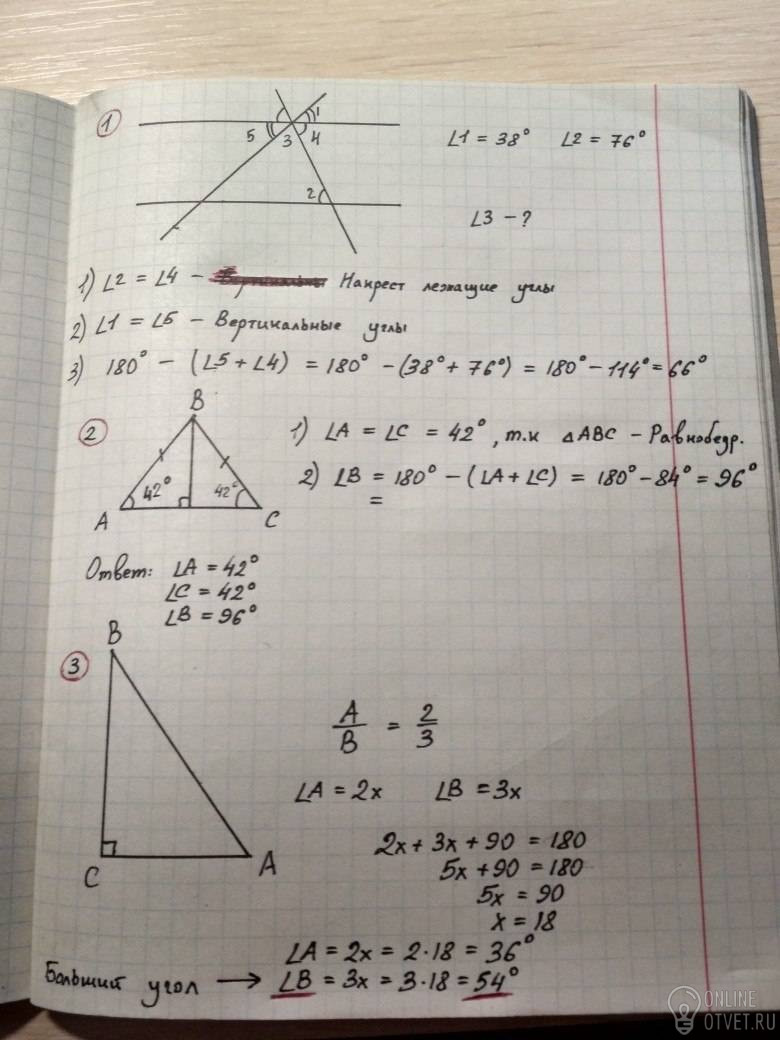 1
5 3 4 1
2
∠1 = 38° ∠2 = 76°
∠3 - ?
1) ∠2 = ∠4 - Накрест лежащие углы
2) ∠1 = ∠5 - Вертикальные углы
3) 180° - (∠5 + ∠4) = 180° - (38° + 76°) = 180° - 114° = 66°
2
B
42° 42°
A C
1) ∠A = ∠C = 42°, т.к △ABC - Равнобедр.
2) ∠B = 180° - (∠A + ∠C) = 180° - 84° = 96°
=
Ответ: ∠A = 42°
∠C = 42°
∠B = 96°
3
B
C A
A/B = 2/3
∠A = 2x ∠B = 3x
2x + 3x + 90 = 180
5x + 90 = 180
5x = 90
x = 18
∠A = 2x = 2·18 = 36°
Больший угол → ∠B = 3x = 3·18 = 54°
ONLINE
OTVET.RU